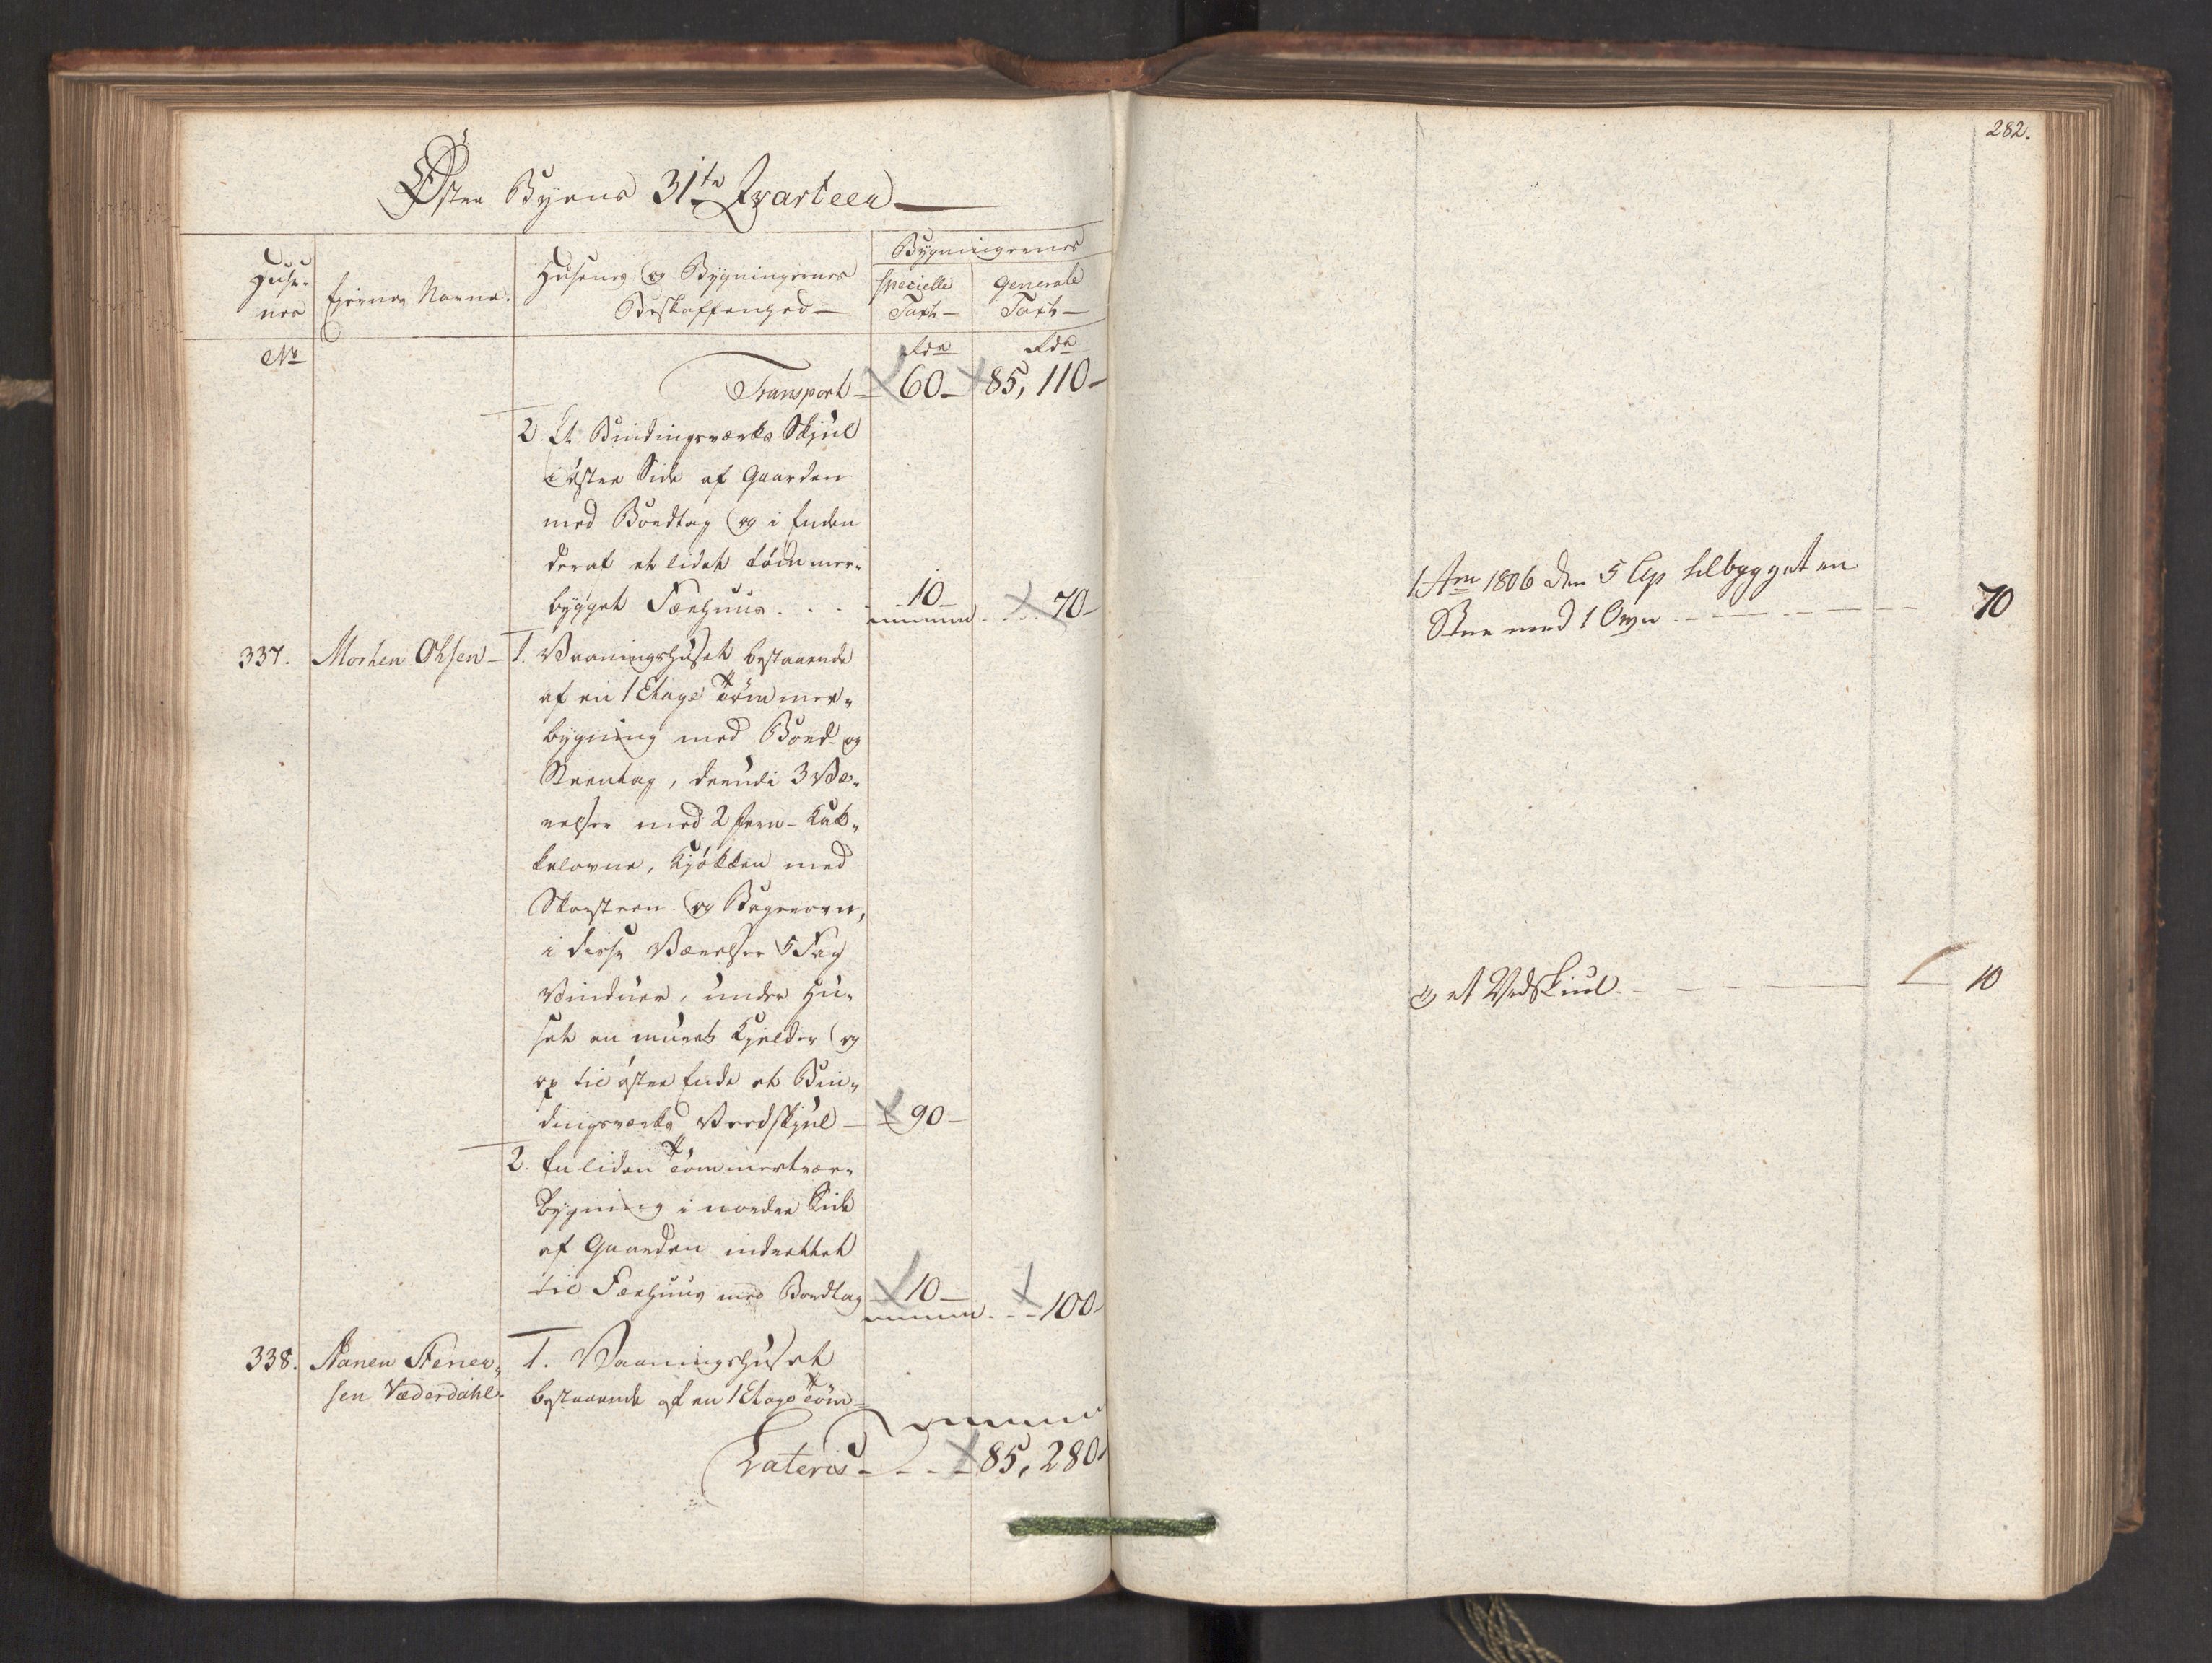 282.
Øster Byens 31te Qvarteer
Huse-
nes
Ejernes Navne.
Husenes og Bygningernes
Beskaffenhed
Bygningernes
specielle
Taxt
Generale
Taxt
No
Rdr
Rdr
Transport 60 85,110
2. Et Bindingsværks Skjul
i øster Side af Gaarden
med Bordtag og i Enden
deraf et lidet tømmer-
bygget Fæehuus . . . 10 70
337. Morten Olsen 1. Vaaningshuset bestaaende
af en 1 Etage Tømmer-
bygning med Bord- og
Steentag, derudi 3 Væ-
relser med 2 Jern-Kak-
kelovne, Kjøkken med
Skorsteen og Bagerovn,
i disse Værelser 5 Fag
Vinduer, under Hu-
set en muret Kjelder og
op til øster Ende et Bin-
dingsværks Veedskjul 90
2. En liden Tømmertver-
bygning i norder Side
af Gaarden indrettet
til Fæehuus med Bordtag 10 100
338. Aanen Stener- 1. Vaaningshuset
sen Væderdahl. bestaaende af en 1 Etage Tøm-
Lateris 85,280
1806 den 5 tilbygget en
Stue med 1 70
og et Vedskiul 10